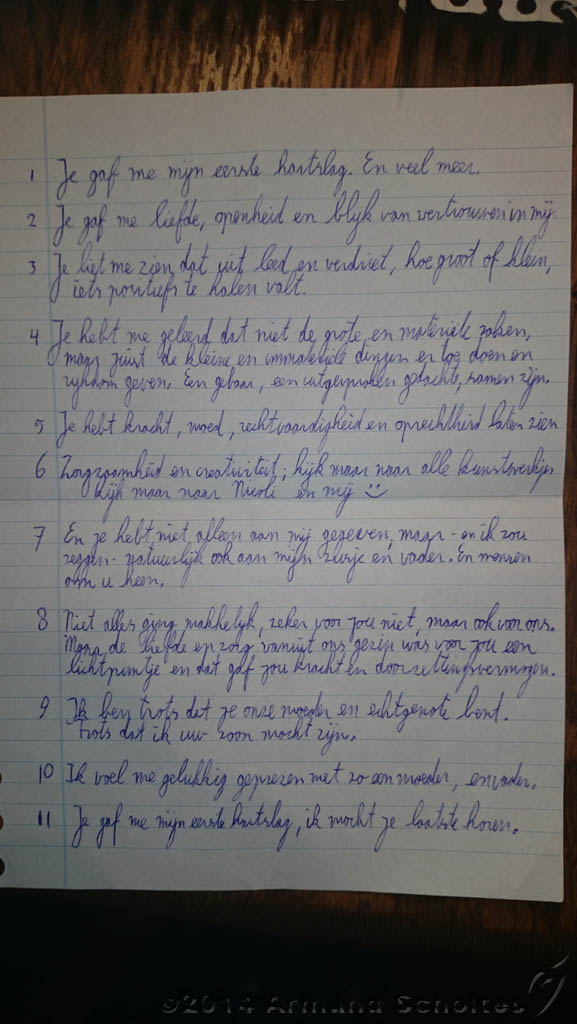 1 Je gaf me mijn eerste hartslag. En veel meer.
2 Je gaf me liefde, openheid en blijk van vertrouwen in mij
3 Je liet me zien dat uit leed en verdriet, hoe groot of klein,
iets positiefs te halen valt.
4 Je hebt me geleerd dat niet de grote en materiele zaken,
maar juist de kleine en immateriele dingen er toe doen en
rijkdom geven. Een gebaar, een uitgesproken gedachte, samen zijn.
5 Je hebt kracht, moed, rechtvaardigheid en oprechtheid laten zien
6 Zorgzaamheid en creativiteit; kijk maar naar alle kunstwerkjes
kijk maar naar Nicole en mij
7 En je hebt niet alleen aan mij gegeven, maar - en ik zou
zeggen - natuurlijk ook aan mijn zusje en vader. En mensen
om u heen.
8 Niet alles ging makkelijk, zeker voor jou niet, maar ook voor ons.
Maar de liefde en zorg vanuit ons gezin was voor jou een
lichtpuntje en dat gaf jou kracht en doorzettingsvermogen.
9 Ik ben trots dat je onze moeder en echtgenote bent.
Trots dat ik uw zoon mocht zijn.
10 Ik voel me gelukkig geprezen met zo een moeder, en vader.
11 Je gaf me mijn eerste hartslag, ik mocht je laatste horen.
©2014 Armand Scholtes